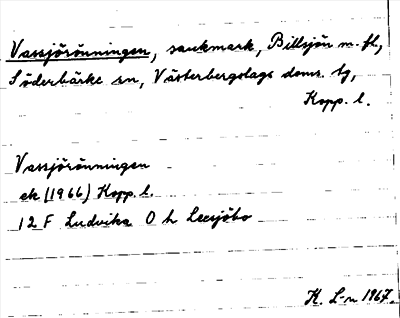 Vassjörönningen, sankmark, Billsjön m. fl,
Söderbärke sn, Västerbergslags doms. tg,
Kopp. l.
Vassjörönningen
ek (1966) Kopp. l.
12 F Ludvika 0 h Leesjöbo
K. L-n 1967.